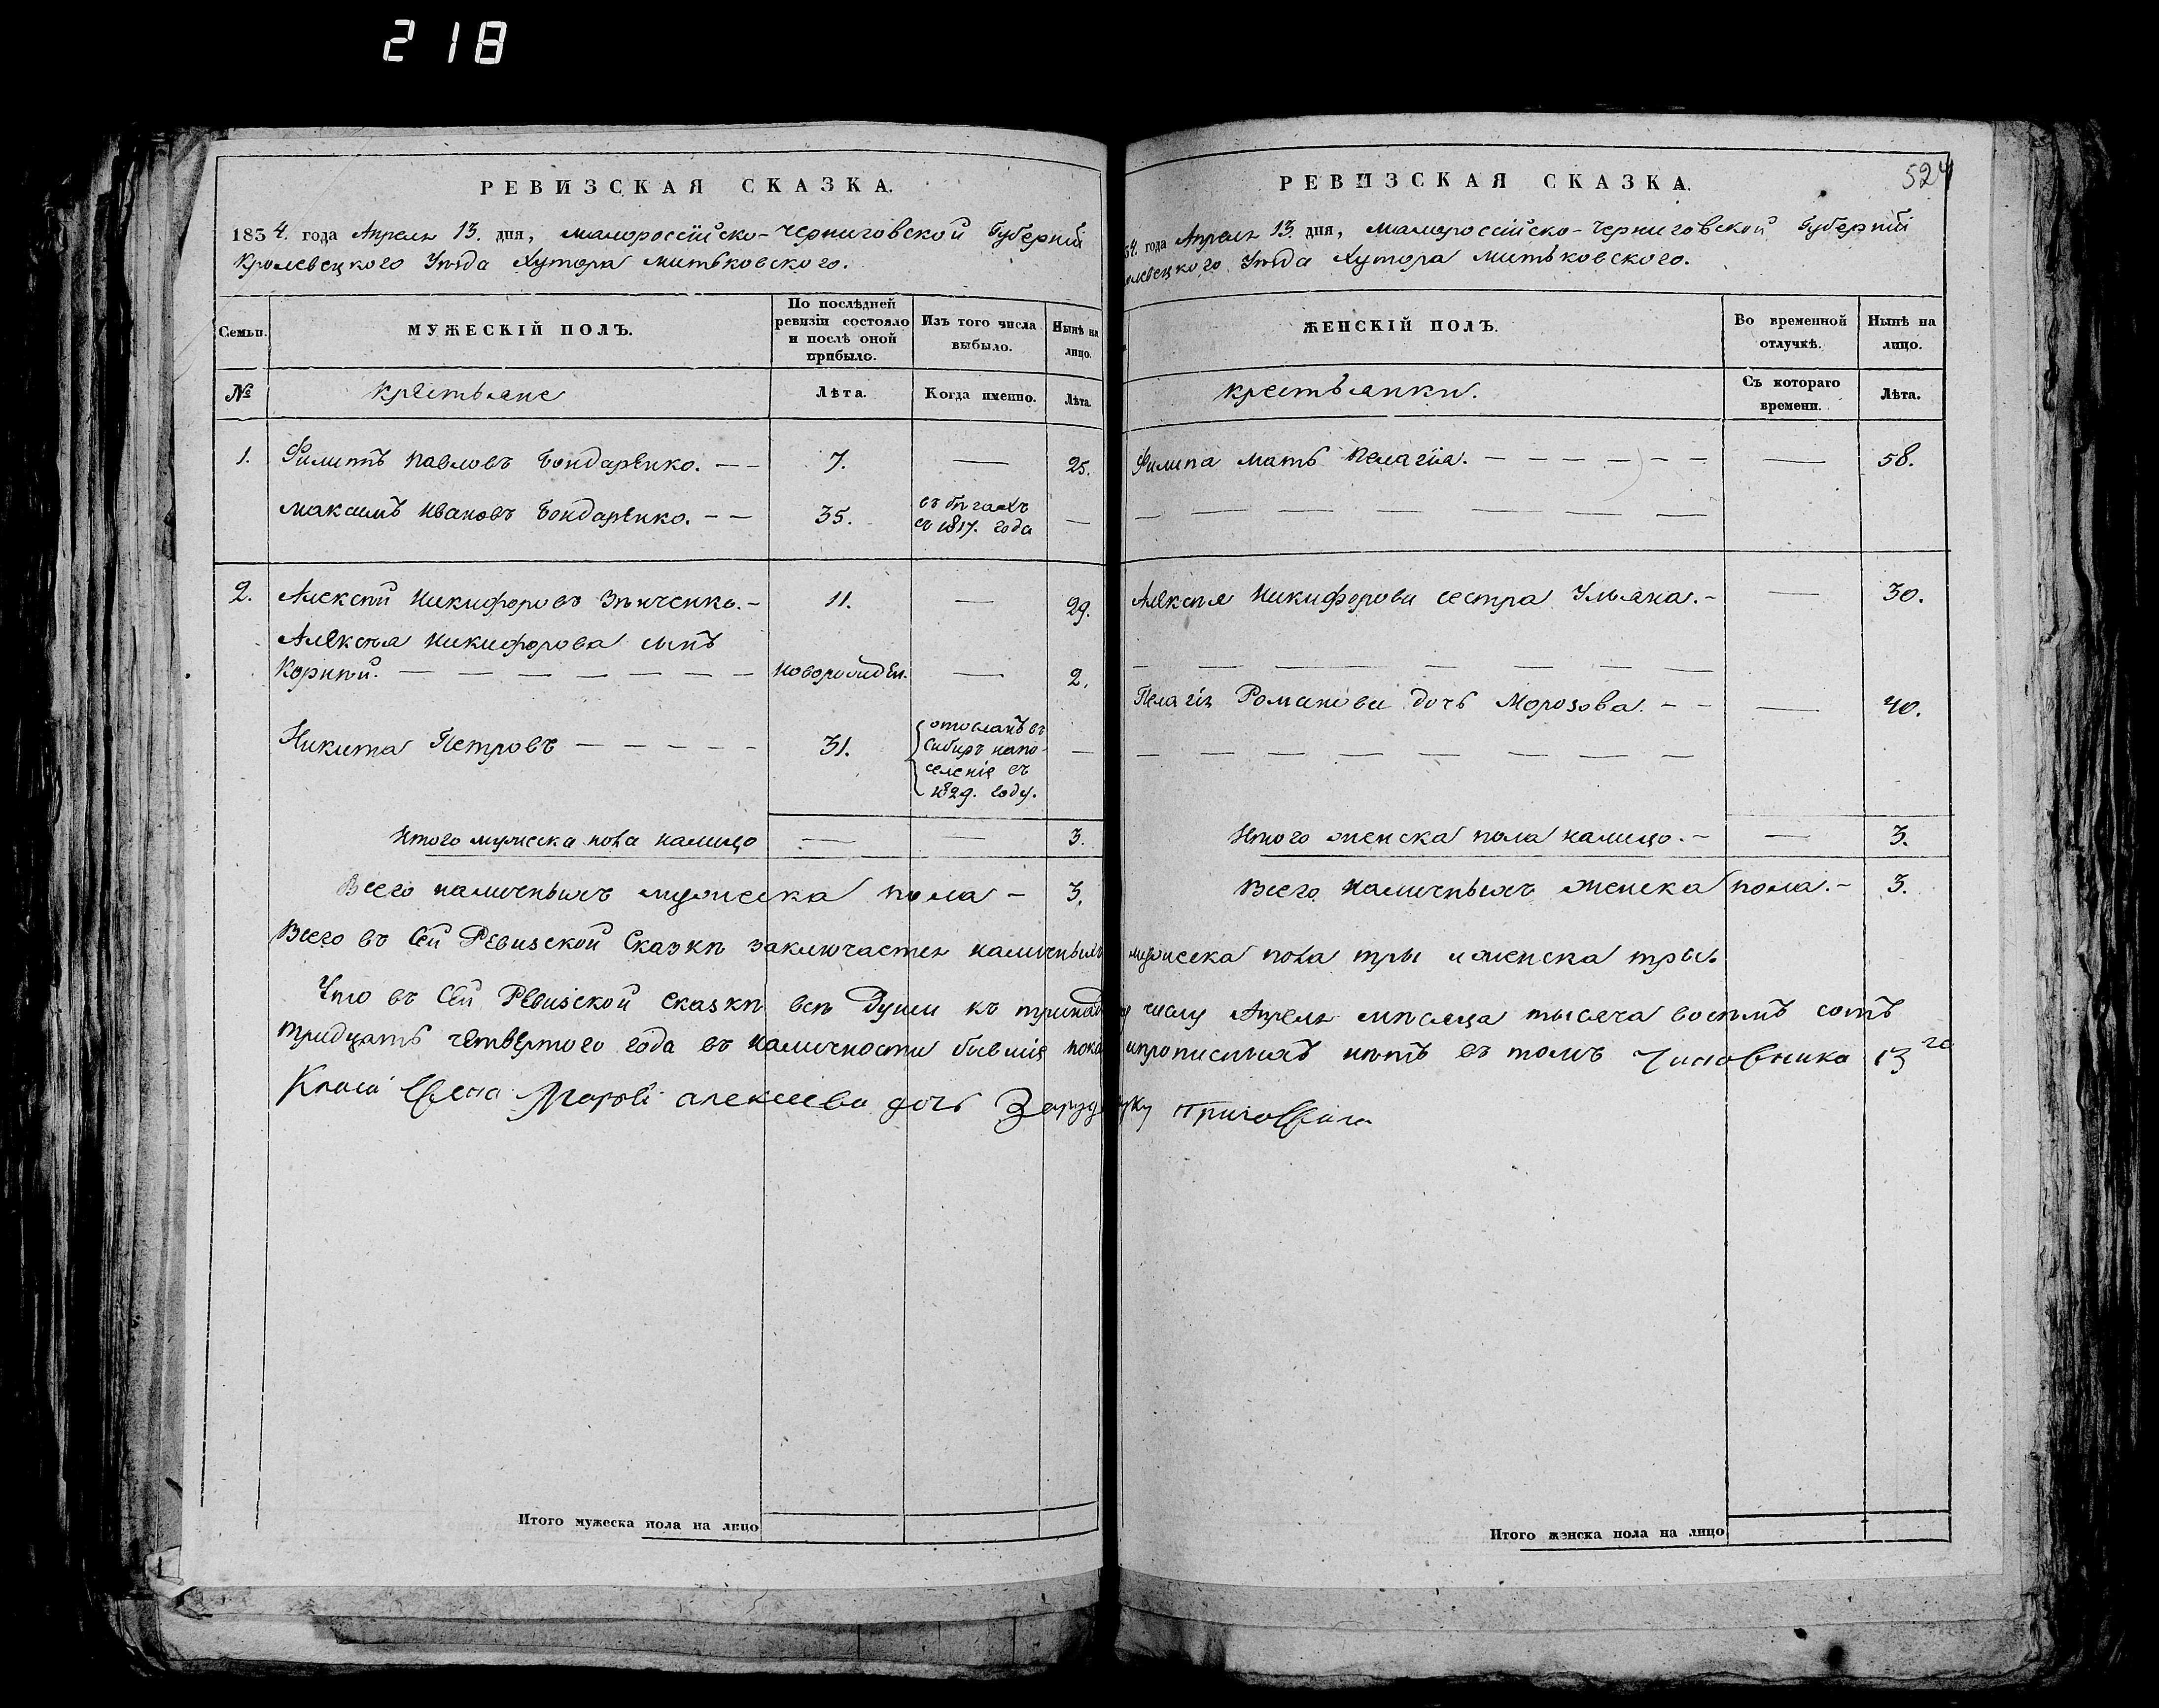 218
РЕВИЗСКАЯ СКАЗКА.
1834. года Апреля 13. дня, Малороссійско-Черниговской Губерніи
Кролевецкого Уѣзда Хутора Митьковского.
Семьи.
МУЖЕСКІЙ ПОЛЪ.
По послѣдней ревизіи состояло и послѣ оной прибыло.
Изъ того числа выбыло.
Нынѣ на лицо.
№
Крестьяне
Лѣта.
Когда именно.
Лѣта.
1. Филиппъ Павловъ Бондаренко. — — 7. — 25.
Максимъ Ивановъ Бондаренко. — — 35. въ бѣгахъ съ 1817. года —
2. Алексѣй Никифоровъ Зѣнченко. — 11. — 29.
Алексѣя Никифорова сынъ
Корнѣй. — — — — — — — новорожден. — 2.
Никита Петровъ — — — — — 31. отосланъ въ Сибирь на поселеніе въ 1829. году. —
Итого мужеска пола налицо — — 3.
Всего наличныхъ мужеска пола — 3.
РЕВИЗСКАЯ СКАЗКА.
524
34. года Апреля 13. дня, Малороссійско-Черниговской Губерніи
олевецкого Уѣзда Хутора Митьковского.
ЖЕНСКІЙ ПОЛЪ.
Во временной отлучкѣ.
Нынѣ на лицо.
Крестьянки.
Съ котораго времени.
Лѣта.
Филипа мать Пелагія. — — — — — — — 58.
— — — — — — —
Алексѣя Никифорова сестра Ульяна. — — 30.
— — — — — — —
Пелагія Романова дочь Морозова. — — — 40.
— — — — — — —
Итого женска пола налицо. — — 3.
Всего наличныхъ женска пола. — 3.
Всего въ сей Ревизской Сказкѣ заключается наличныхъ мужеска пола три и женска три.
Что въ сей Ревизской Сказкѣ всѣ души къ числу Апреля мѣсяца тысяча восемъ сотъ
тридцать четвертого года въ наличности бывшія прописныхъ нѣтъ въ томъ Чиновника 13 го
Класа Алексеева дочь
Итого мужеска пола на лицо
Итого женска пола на лицо